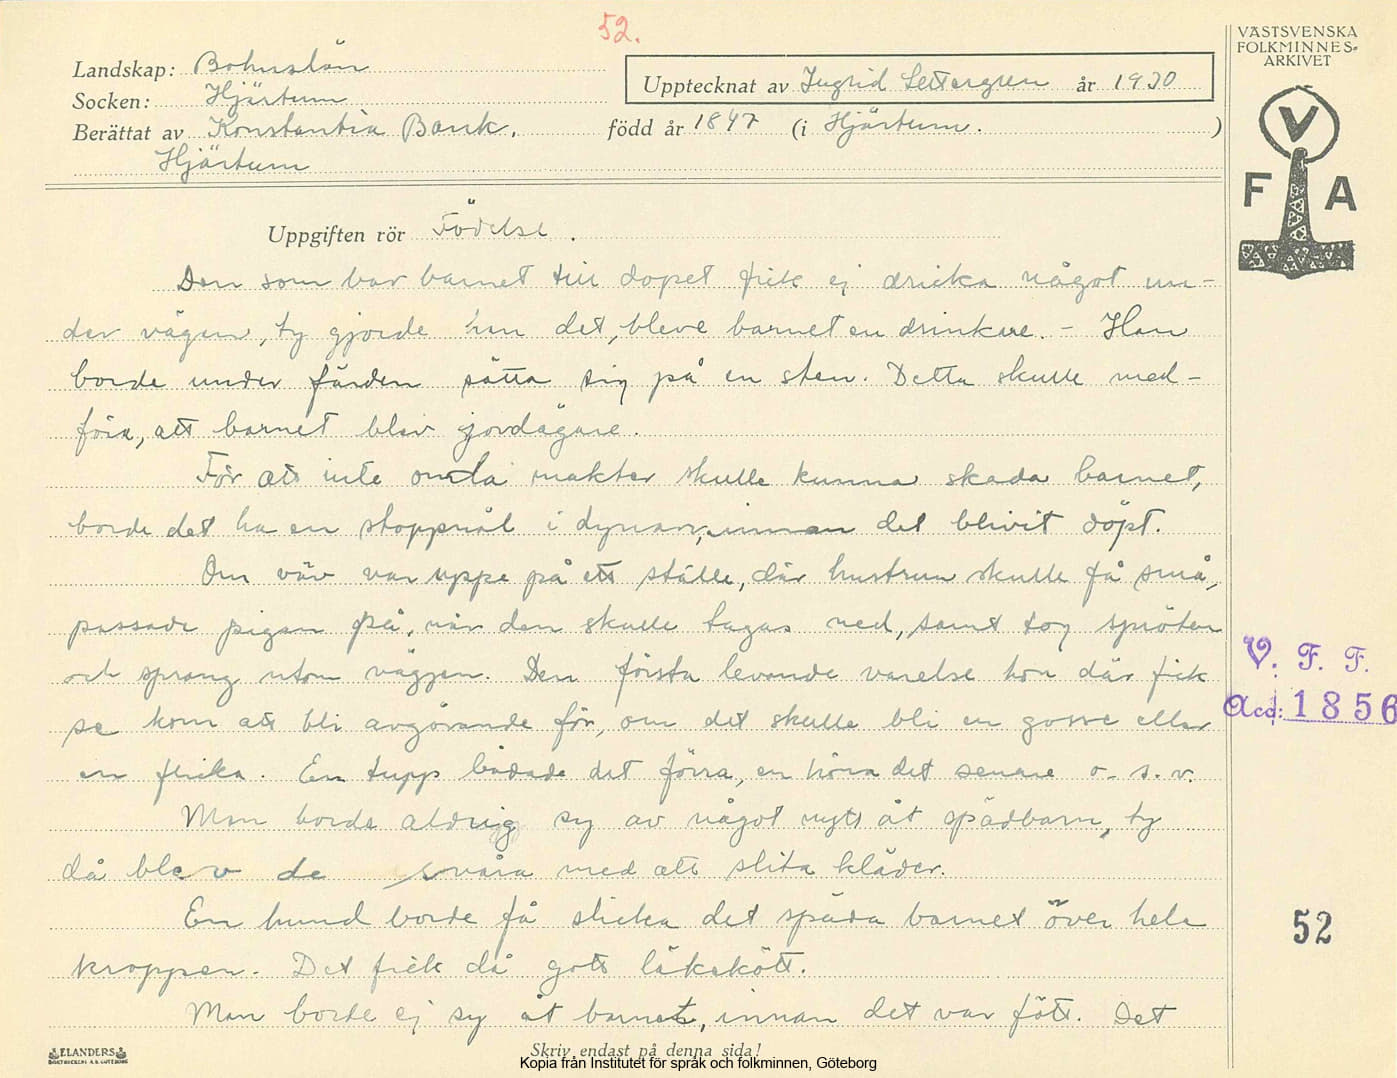 52.
VÄSTSVENSKA
FOLKMINNES-
ARKIVET
Landskap: Bohuslän
Upptecknat av Ingrid Settergren år 1930
Socken: Hjärtum
Berättat av Konstantia Bank, född år 1847 (i Hjärtum. )
Hjärtum
V
F A
Uppgiften rör Födelse.
Den som bar barnet till dopet fick ej dricka något un-
der vägen, ty gjorde han det, bleve barnet en drinkare. - Han
borde under färden sätta sig på en sten. Detta skulle med-
föra, att barnet blev jordägare.
För att inte onda makter skulle kunna skada barnet,
borde det ha en stoppnål i dynan, innan det blivit döpt.
Om väv var uppe på ett ställe, där hustrun skulle få små,
passade pigan på, när den skulle tagas ned, samt tog spröten
och sprang utom väggen. Den första levande varelse hon där fick
se kom att bli avgörande för, om det skulle bli en gosse eller
en flicka. En tupp bådade det förra, en höna det senare o. s. v.
V. F. F.
Acc: 1856
Man borde aldrig sy av något nytt åt spädbarn, ty
då blev de svåra med att slita kläder.
En hund borde få slicka det späda barnet över hela
kroppen. Det fick då gott läkekött.
52
Man borde ej sy åt barnet, innan det var fött. Det
ELANDERS
Skriv endast på denna sida!
Kopia från Institutet för språk och folkminnen, Göteborg